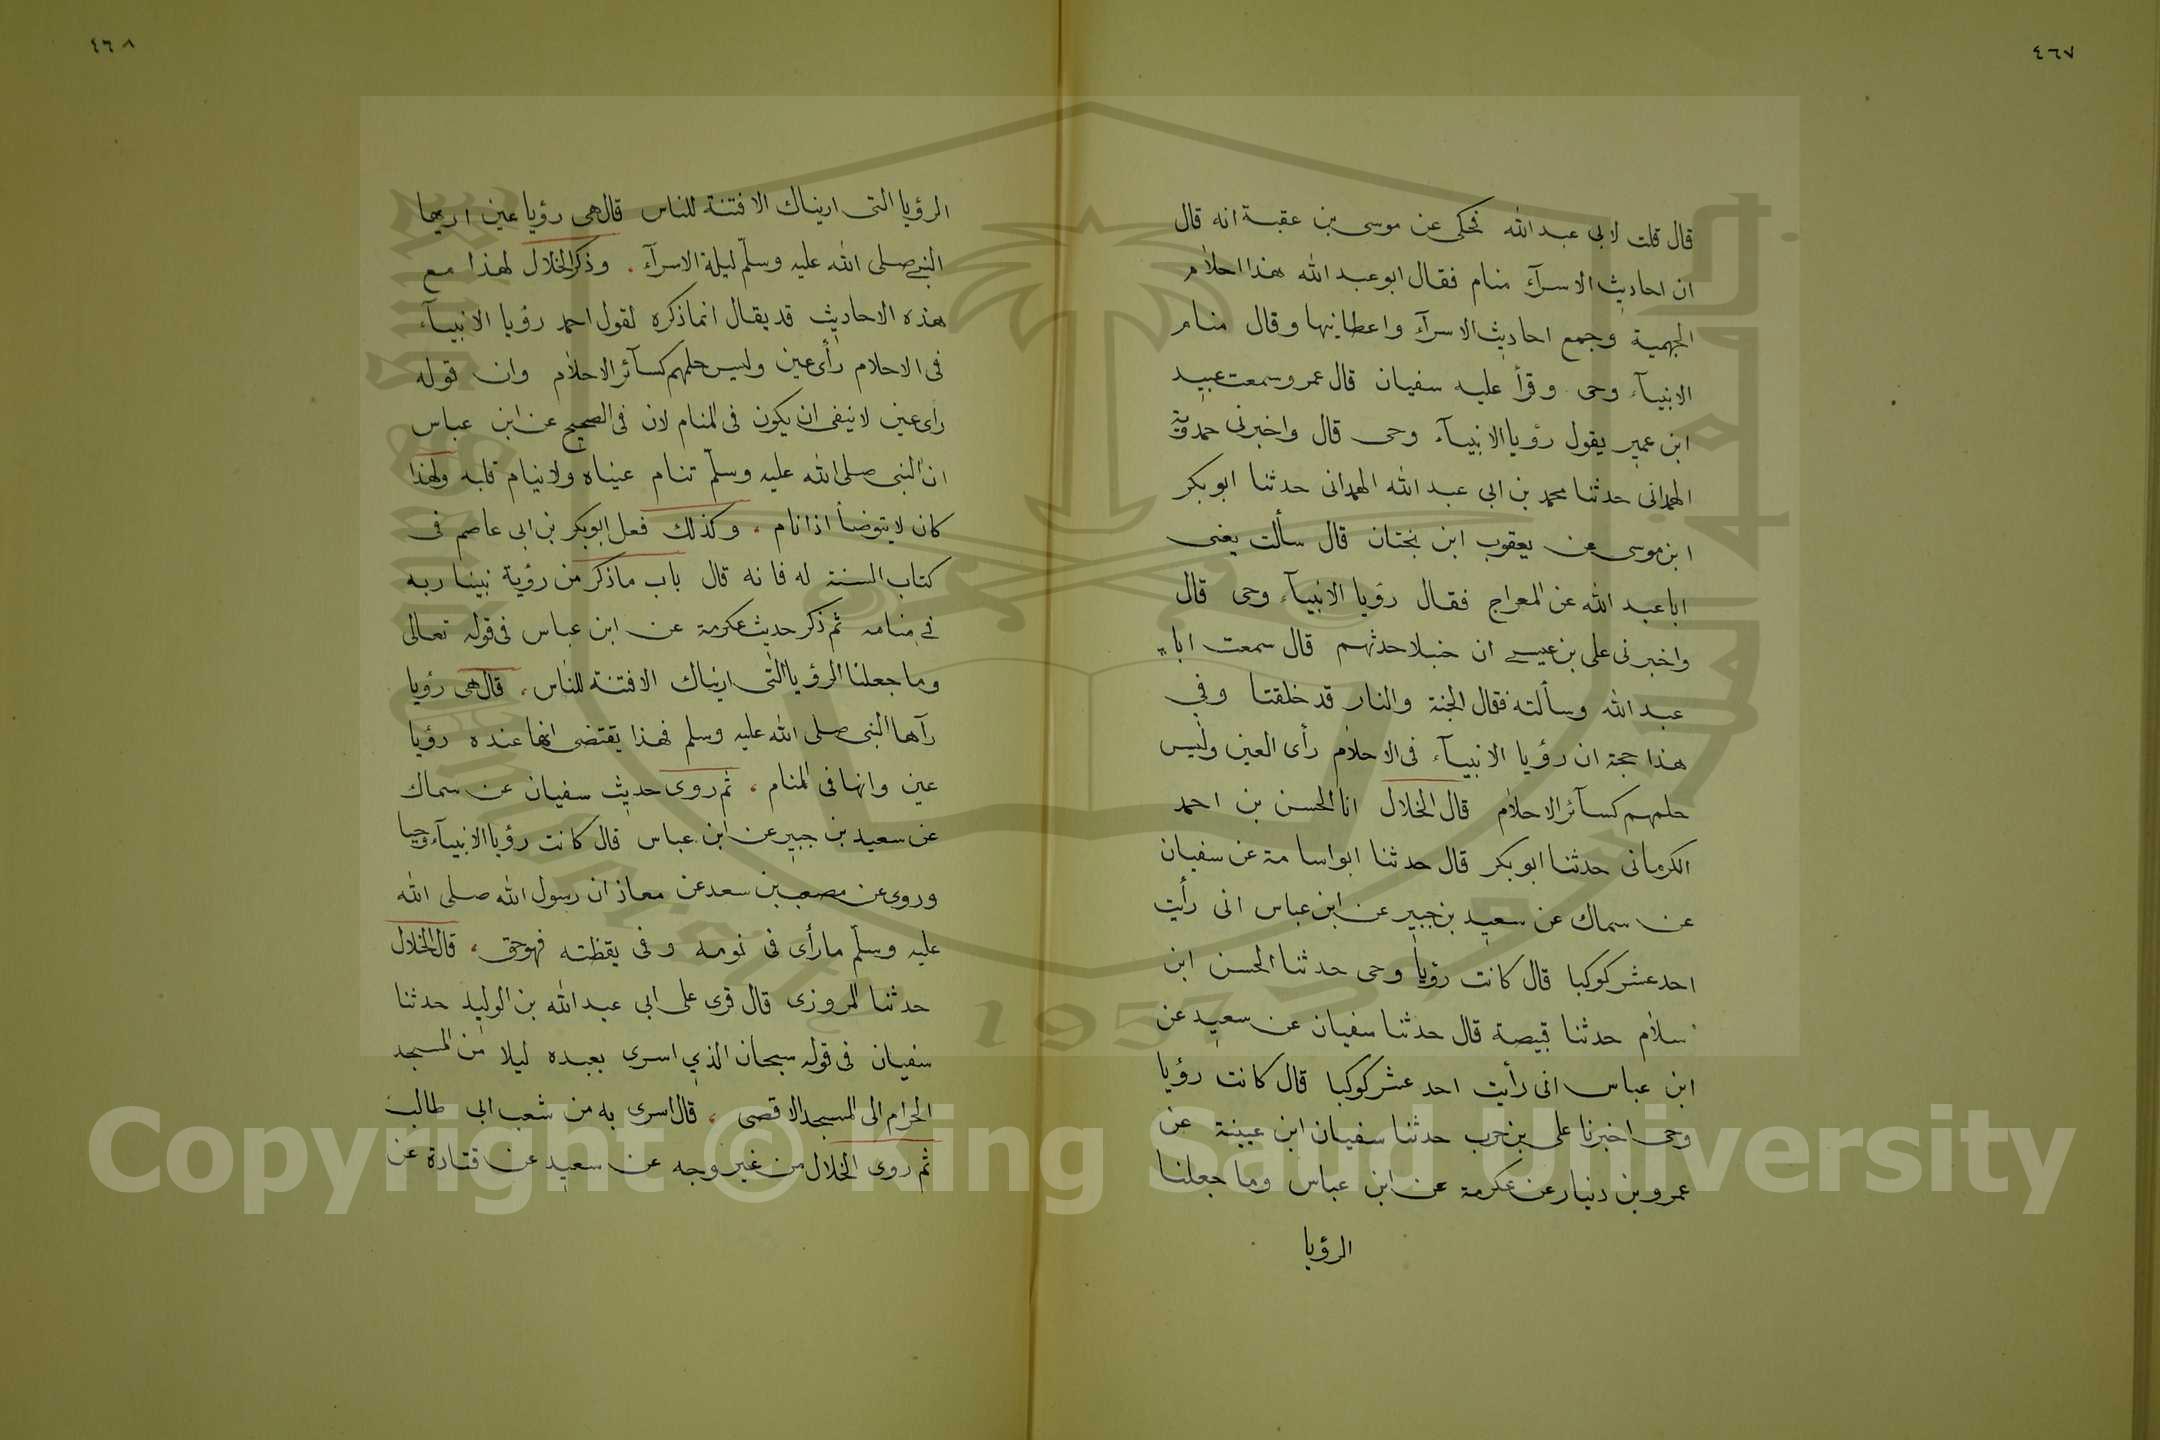 ٤٦٧
قال قلت لابي عبد الله فحكى عن موسى بن عقبة انه قال
ان احاديث الاسرآء منام فقال ابو عبد الله هذا احلام
الجهمية وجمع احاديث الاسرآء واعطانيها وقال منام
الانبيآء وحى وقرأ عليه سفيان قال عمر وسمعت عبيد
ابن عمير يقول رؤيا الانبيآء وحى قال واخبرنى حمدوية
الهمدانى حدثنا محمد بن ابي عبد الله الهمدانى حدثنا ابو بكر
ابن موسى عن يعقوب ابن بختان قال سألت يعنى
ابا عبد الله عن المعراج فقال رؤيا الانبيآء وحى قال
واخبرنى على بن عيسى ان حنبلا حدثهم قال سمعت ابا
عبد الله وسألته فقال الجنة والنار قد خلقتا وفي
هذا حجة ان رؤيا الانبيآء فى الاحلام رأى العين وليس
حلمهم كسآئر الاحلام قال الخلال انا الحسن بن احمد
الكرمانى حدثنا ابو بكر قال حدثنا ابو اسامة عن سفيان
عن سماك عن سعيد بن جبير عن ابن عباس انى رأيت
احد عشر كوكبا قال كانت رؤيا وحى حدثنا الحسن ابن
سلام حدثنا قبيصة قال حدثنا سفيان عن سعيد عن
ابن عباس انى رأيت احد عشر كوكبا قال كانت رؤيا
وحى اخبرنا على بن حرب حدثنا سفيان ابن عيينة عن
عمرو بن دينار عن عكرمة عن ابن عباس وما جعلنا
الرؤيا
٤٦٨
الرؤيا التى اريناك الا فتنة للناس قال هى رؤيا عين اريها
النبي صلى الله عليه وسلم ليلة الاسرآء . وذكر الخلال لهذا مع
هذه الاحاديث قد يقال انما ذكره لقول احمد رؤيا الانبيآء
فى الاحلام رأى عين وليس حلمهم كسآئر الاحلام وان قوله
رأى عين لا ينفى ان يكون فى المنام لان فى الصحيح عن ابن عباس
ان النبى صلى الله عليه وسلم تنام عيناه ولا ينام قلبه ولهذا
كان لا يتوضأ اذا نام . وكذلك فعل ابو بكر بن ابى عاصم فى
كتاب السنة له فانه قال باب ما ذكر من رؤية نبينا ربه
في منامه ثم ذكر حديث عكرمة عن ابن عباس فى قوله تعالى
وما جعلنا الرؤيا التى اريناك الا فتنة للناس . قال هى رؤيا
رآها النبى صلى الله عليه وسلم فهذا يقتضى انها عنده رؤيا
عين وانها فى المنام . ثم روى حديث سفيان عن سماك
عن سعيد بن جبير عن ابن عباس قال كانت رؤيا الانبيآء وحيا
وروى عن مصعب بن سعد عن معاذ ان رسول الله صلى الله
عليه وسلم ما رأى فى نومه وفى يقظته فهو حق . قال الخلال
حدثنا المروزى قال قرى على ابى عبد الله بن الوليد حدثنا
سفيان فى قوله سبحان الذي اسرى بعبده ليلا من المسجد
الحرام الى المسجد الاقصى . قال اسرى به من شعب ابى طالب
ثم روى الخلال من غير وجه عن سعيد عن قتادة عن
Copyright © King Saud University
1957